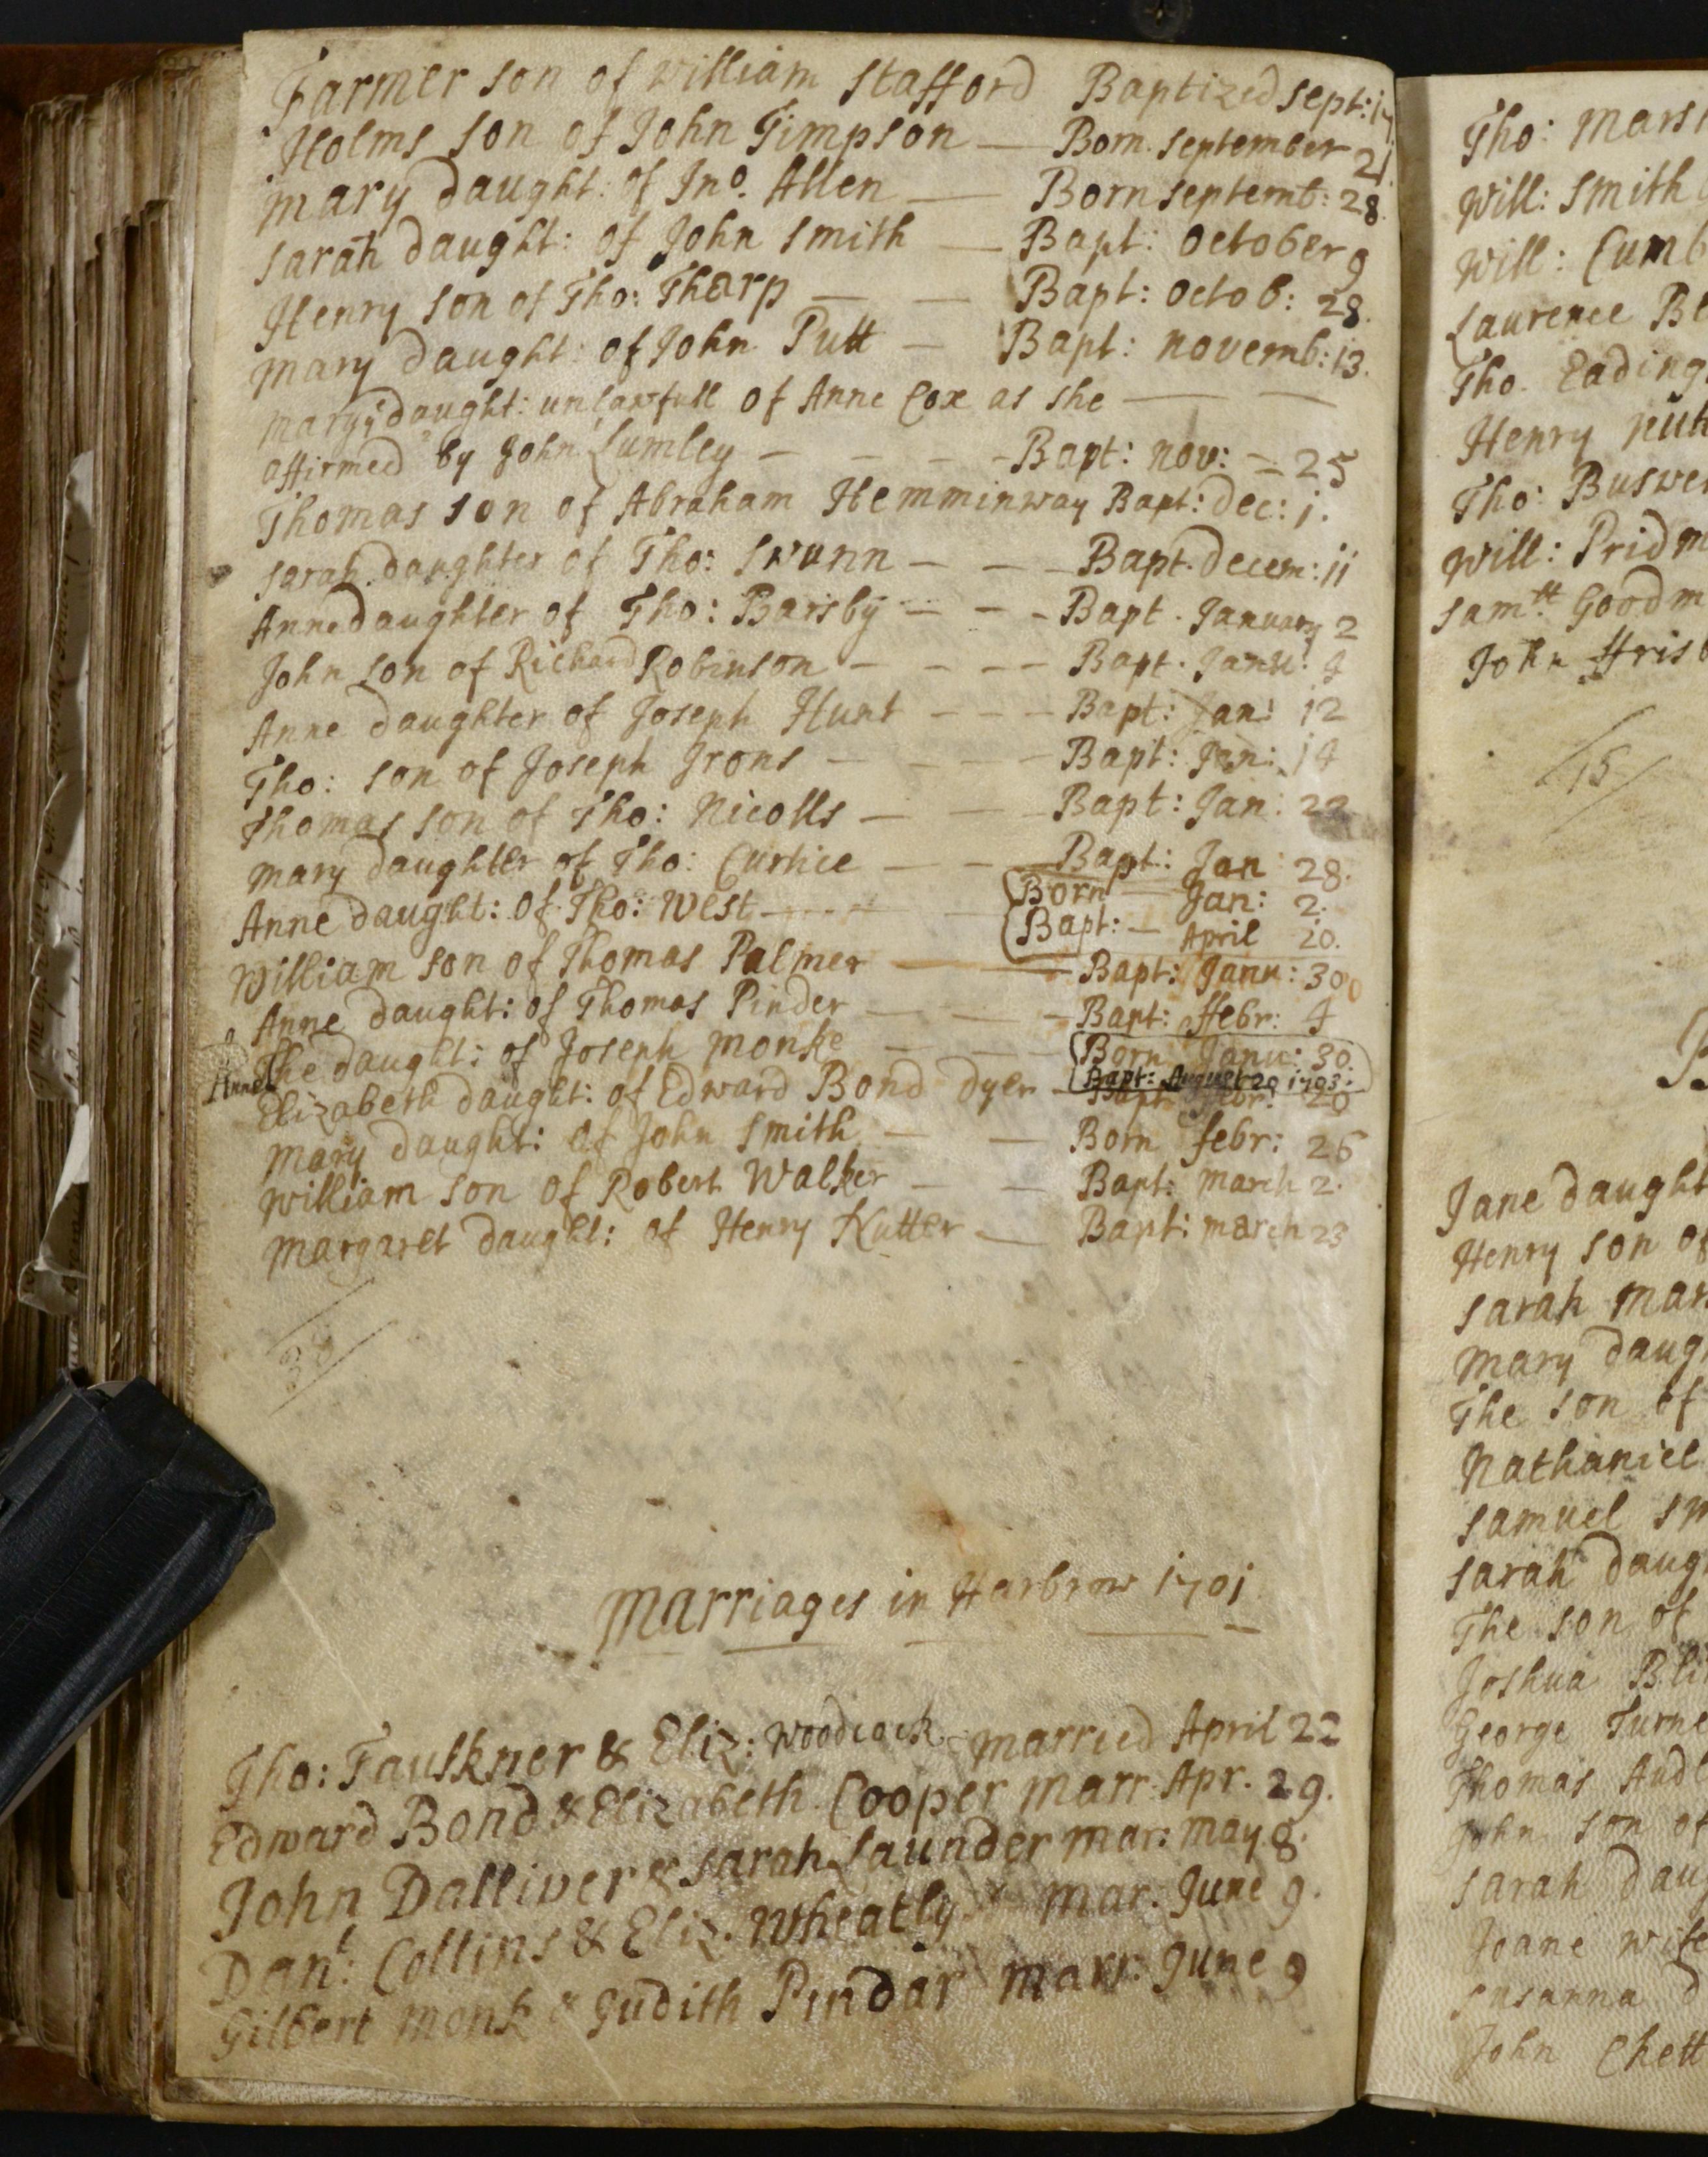 Farmer son of william Stafford Baptized Sept: 17
Holms son of John Timpson — Born September 21.
mary daught: of Jno. Allen — Born septemb: 28.
sarah daught: of John Smith — Bapt: October 9
Henry son of Tho: Tharp — — Bapt: Octob: 28.
mary daught: of John Putt — Bapt: novemb: 13.
mary daught: unlawfull of Anne Cox as she — —
affirmed by John Lumley — — — — Bapt: nov: — 25
Thomas son of Abraham Hemminway Bapt: Dec: 1.
sarah daughter of Tho: Swann — — — Bapt. Decem: 11
Anne daughter of Tho: Barsby — — — Bapt. January 2
John son of Richard Robinson — — — — Bapt. Janu: 4
Anne daughter of Joseph Hunt — — — Bapt: Jan: 12
Tho: son of Joseph Irons — — — — Bapt: Jan: 14
Thomas son of Tho: Nicolls — — — Bapt: Jan: 22
mary daughter of Tho: Curtice — — — Bapt: Jan 28.
Anne daught: of Tho: West — — — Born — Jan: 2.
Bapt: — April 20.
William son of Thomas Palmer — — Bapt: Janu: 30
Anne daught: of Thomas Pinder — — — Bapt: ffebr: 4
Anne The daught: of Joseph Monke — — — Born Janu: 30.
Bapt: August 20 1703.
Elizabeth daught: of Edward Bond Dyer — Bapt: febr: 20
Mary daught: of John Smith — — Born febr: 26
William son of Robert Walker — — Bapt: march 2.
Margaret daught: of Henry Nutter — Bapt: march 23
Marriages in Harbrow 1701
Tho: Faulkner & Eliz: Woodcock — married April 22
Edward Bond & Elizabeth Cooper marr. Apr. 29.
John Dalliver & sarah Saunder mar: may 8.
Danl: Collins & Eliz. Wheatly — mar. June 9.
Gilbert monk & Judith Pindar marr. June 9
Tho:
Will: Smith
Will:
Laurence
Tho.
Henry
Tho:
Will:
Samll
John
15
Jane daught
Henry son of
sarah
Mary daug
The son of
Nathaniel
samuel
sarah daug
The son of
Joshua
George
Thomas
John son of
Sarah dau
Joane wife
susanna
John